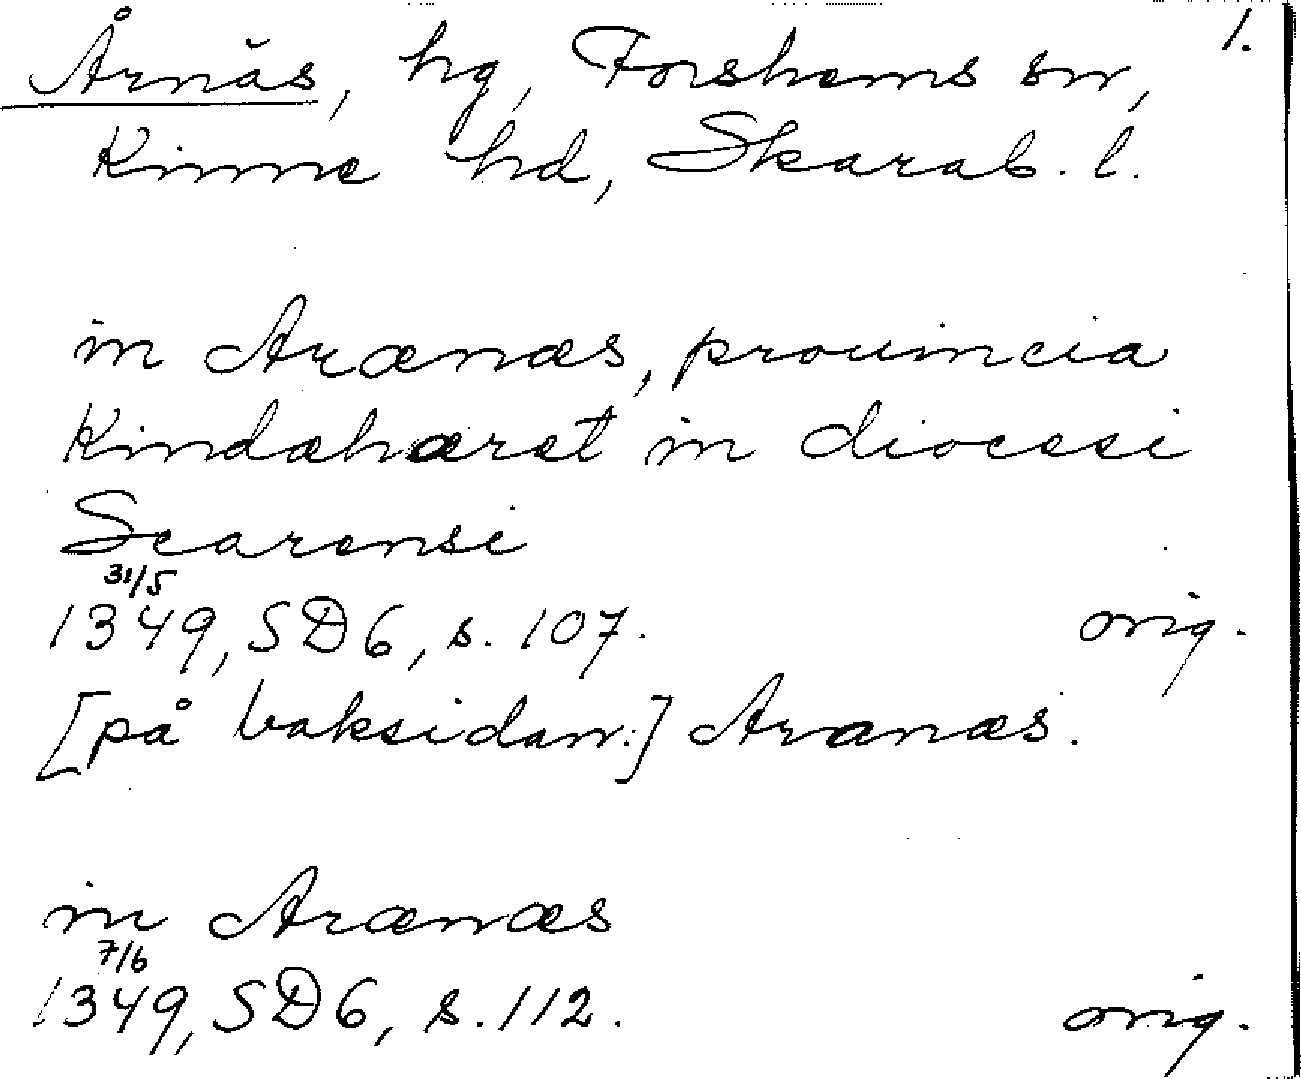 1.
Årnäs, hg, Forshems sn,
Kinne hd, Skarab. l.
in Arænæs, prouincia
Kindæhæret in diocesi
Scarensi
31/5
1349, SD6, s. 107. orig.
[på baksidan:] Aranæs.
in Arænæs
7/6
1349, SD6, s. 112. orig.